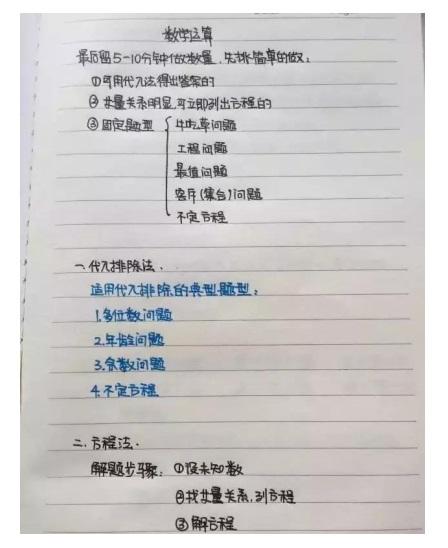 数学运算
最后留5-10分钟做数量,先挑简单的做:
①可用代入法得出答案的
②等量关系明显,可立即列出方程的
③固定题型 牛吃草问题
工程问题
最值问题
容斥(集合)问题
不定方程
一、代入排除法.
适用代入排除的典型题型:
1.多位数问题
2.年龄问题
3.余数问题
4.不定方程
二.方程法.
解题步骤:①设未知数
②找等量关系,列方程
③解方程